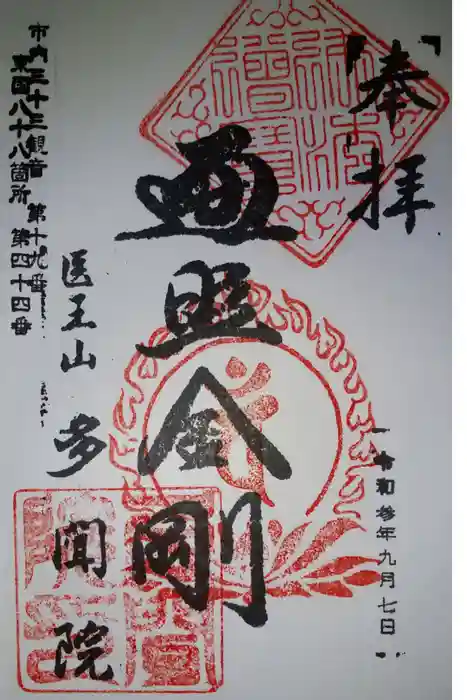 奉拝
佛法僧寶
令和参年九月七日
遍照金剛
医王山 多聞院
市内三十三観音 第十九番
東国八十八箇所 第四十四番